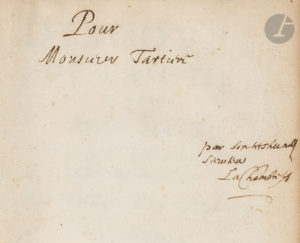 Pour
Monsieur Tartiere
par son tres humble
Serviteur
LaChambre